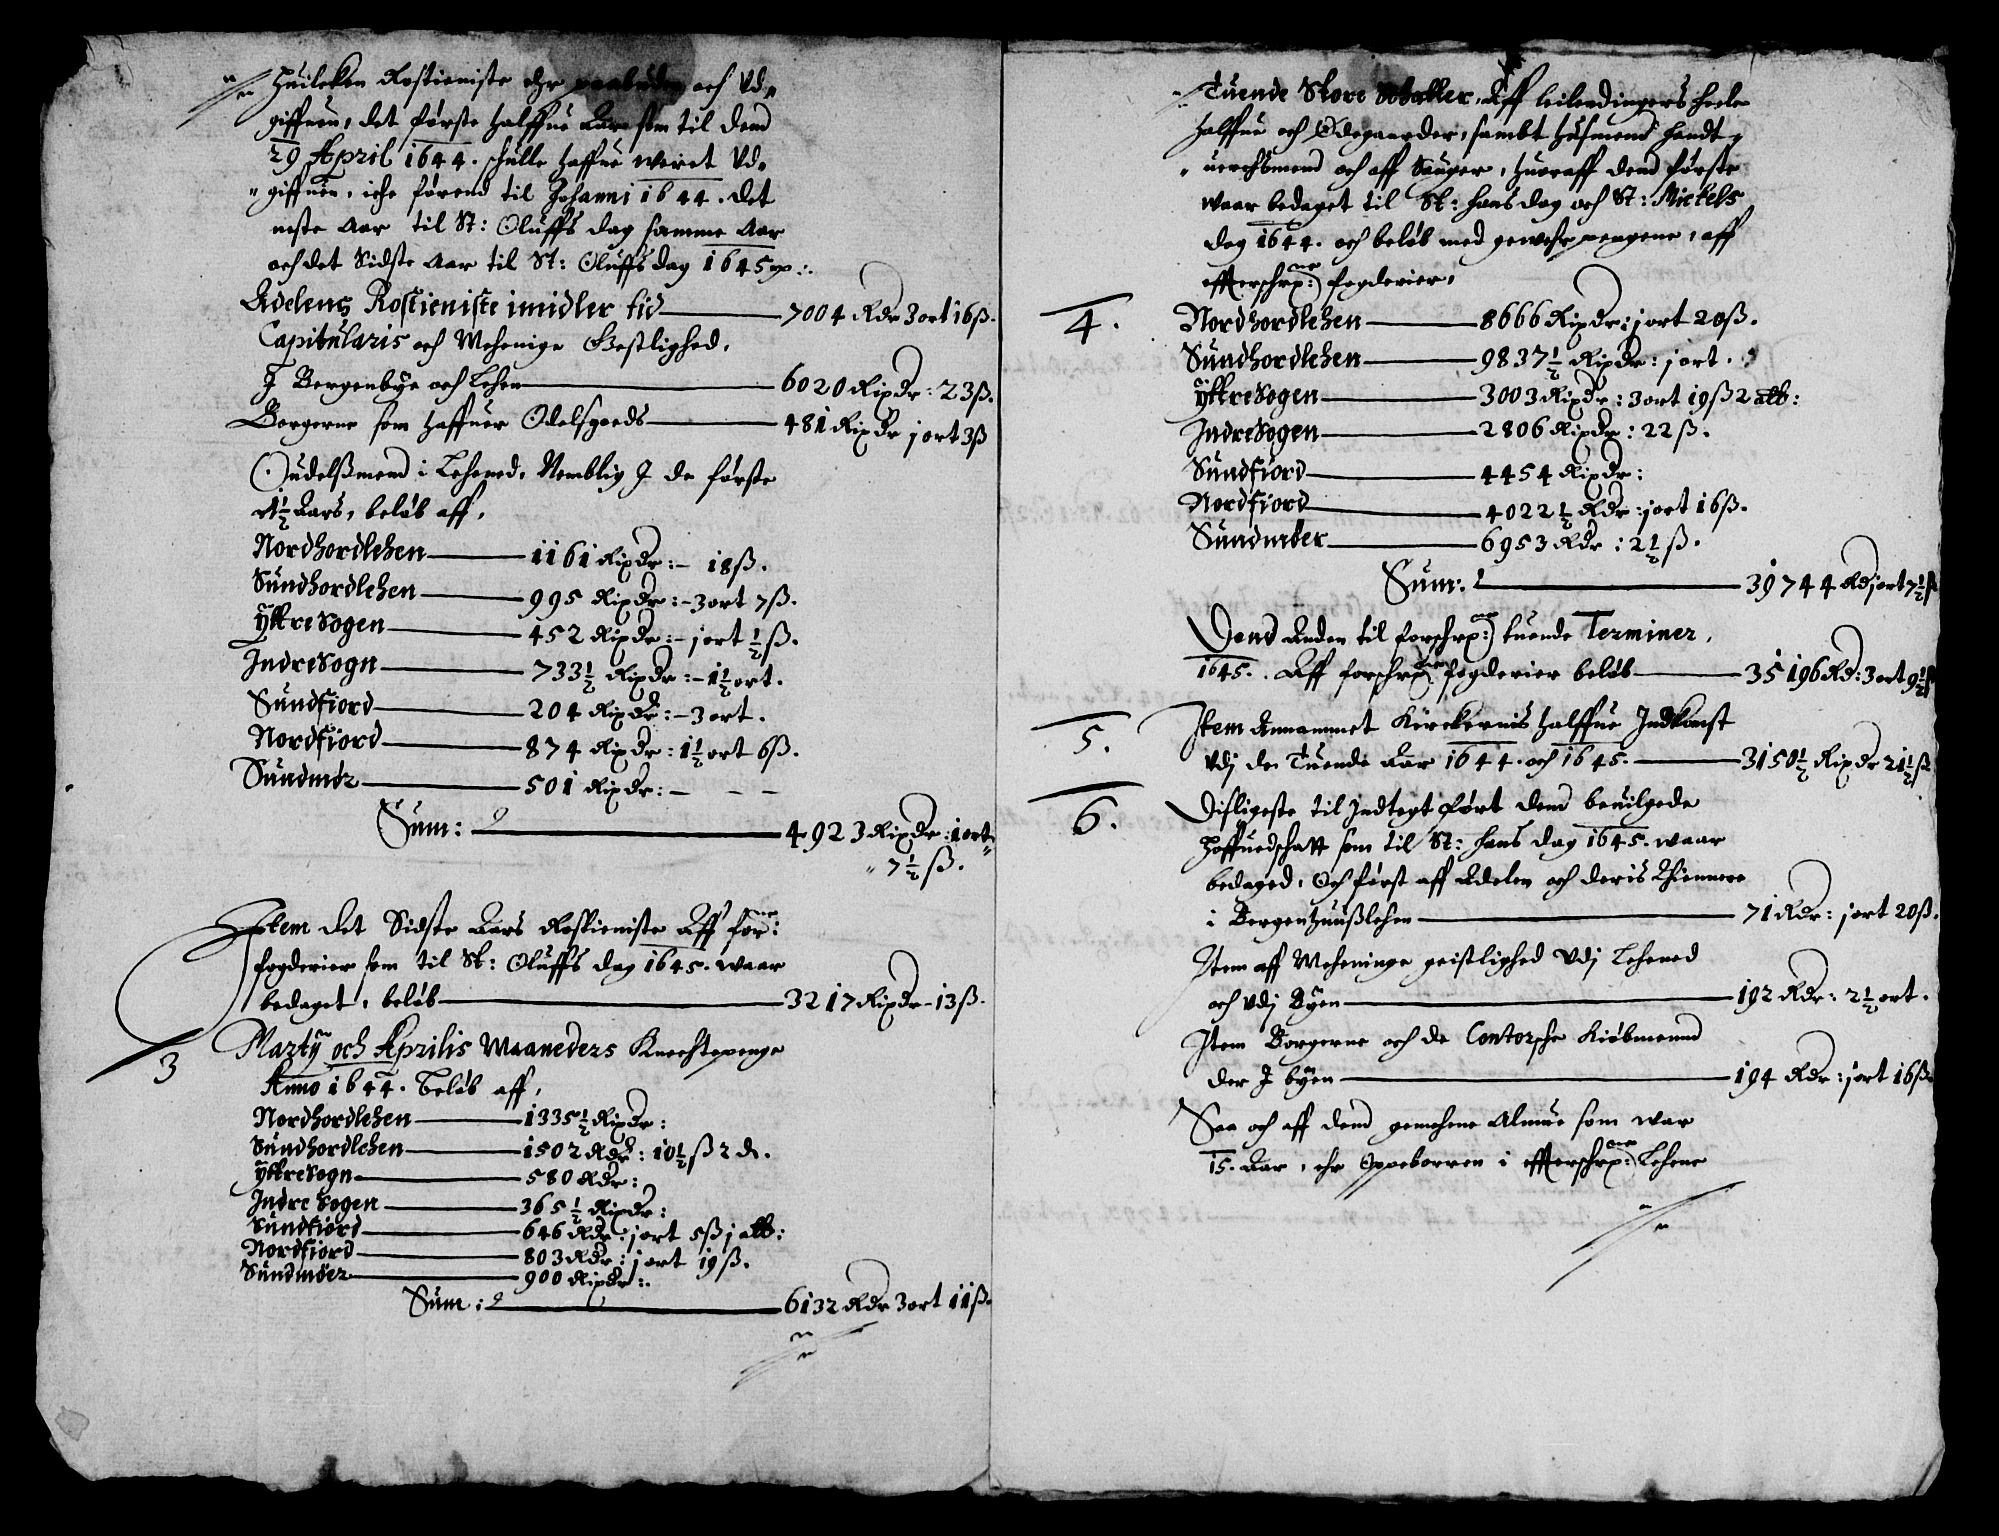 Huilcken Rostieniste ehr paabuden och Vd-
giffuen, det første halffue Aar som til dend
29 April 1644. schulle haffue weret Vd-
giffuen, iche førend til Johanni 1644. det
neste Aar til St: Oluffs dag samme Aar
och det Sidste Aar til St: Oluffs dag 1645
Adelens Rostieniste imidler tid 7004 Rdr 3 ort 16 ß.
Capitularis och Mehenige Gestlighed,
I Bergenbye och Lehen 6020 Rixdr: 23 ß.
Borgerne som haffuer Odelsgoeds 481 Rixdr j ort 3 ß
Oudelßmend i Lehened, Nemblig I de første
1½ Aars, beløb aff,
Nordhordlehen 1161 Rixdr: – 18 ß.
Sundhordlehen 995 Rixdr: – 3 ort 7 ß.
Ÿttre Sogen 452 Rixdr: – j ort ½ ß.
Indre Sogn 733½ Rixdr: – 1½ ort.
Sundfiord 204 Rixdr: – 3 ort.
Nordfiord 874 Rixdr: 1½ ort 6 ß.
Sundmør 501 Rixdr: – – –
Sum: 4923 Rixdr: 1 ort
7½ ß.
Item det Sidste Aars Rostieniste Aff for:ne
fogderier som til St: Oluffs dag 1645. waar
bedaget, beløb 3217 Rixdr – 13 ß.
3 Martÿ och Aprilis Maaneders Knechtepenge
Anno 1644. Beløb aff,
Nordhordlehen 1335½ Rixdr:
Sundhordlehen 1502 Rdr: 10½ ß 2 d.
Ÿttre Sogn 580 Rdr:
Indre Sogen 365½ Rixdr:
Sundfiord 646 Rdr: j ort 5 ß j alb:
Nordfiord 803 Rdr: j ort 19 ß.
Sundmøer 900 Rixdr:
Sum: 6132 Rdr 3 ort 11 ß.
Tuende Store Schatter, Aff leilendingers heele
halffue och Ødegaarder, sambt husmend handt-
uerchsmend och aff Sauger, huoraff dend første
waar bedaget til St: hans dag och St: Mickels
dag 1644. och beløb med gewehr pengene, aff
effterschrp:ne fogderier,
4. Nordhordlehen 8666 Rixdr: j ort 20 ß.
Sundhordlehen 9837½ Rixdr: j ort.
Ÿttre Sogen 3003 Rixdr: 3 ort 19 ß 2 alb:
Indre Sogen 2806 Rixdr: 22 ß.
Sundfiord 4454 Rixdr:
Nordfiord 4022½ Rdr: j ort 16 ß.
Sundmøer 6953 Rdr: 2½ ß.
Sum: 39744 Rd j ort 7½ ß
Dend Anden til forschrp:ne tuende Terminer,
1645. Aff forschrp:ne fogderier beløb 35196 Rd: 3 ort 9½ ß
5. Item Annammet Kirckernis halffue Indkomst
Vdj de Tuende Aar 1644. och 1645. 3150½ Rixdr 21½ ß
6. Disligeste til Indtegt ført dend beuilgede
Hoffuedschatt som til St: hans dag 1645. waar
bedaged, Och først aff Adelen och deris Thiennere
i Bergenhuußlehen 71 Rdr: j ort 20 ß.
Item aff Meheninge geistlighed Vdj Lehened
och Vdj Byen 192 Rdr: 2½ ort.
Item Borgerne och de Contorsche Kiøbmennd
der I byen 194 Rdr: j ort 16 ß.
Saa och aff dend gemehene Almue som war
15. Aar, ehr Oppeborren i effterschrp:ne Lehene